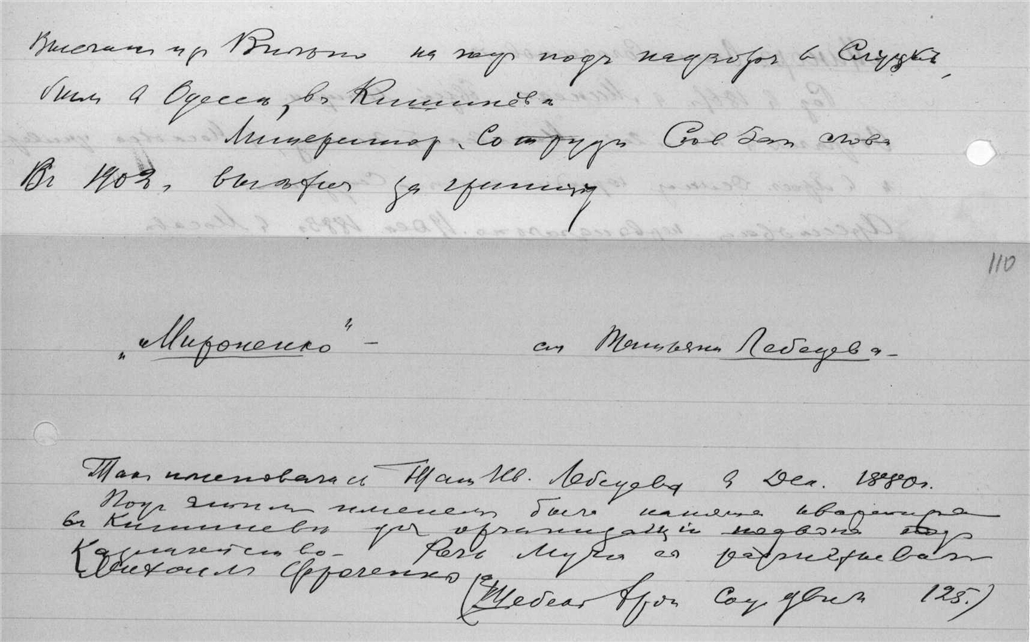 Выслан из Вильно на жит подъ надзоръ в Слуцкъ,
был в Одессе, въ Кишинёве
Литератор. Сотруди
Въ 1902 г. выехал за границу
110
„Мироненко" – см Татьяна Лебедева –
Так именовалась Тат Ив. Лебедева в Дек. 1880 г.
Подъ этим именем была нанята квартира
въ Кишиневе для организации подкопа под
Казначейство – Роль мужа ея разыгрывал
Михаил Фроленко
(Дебог Арон Соц движ 125.)